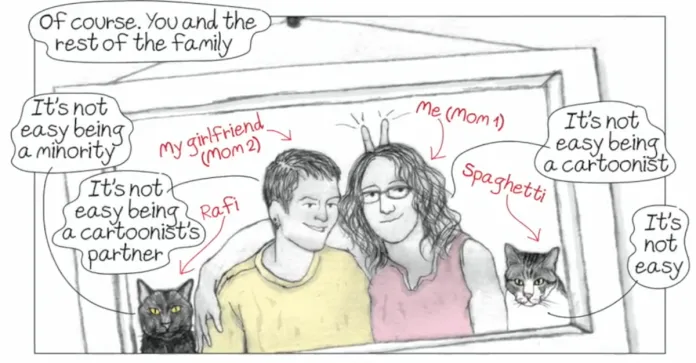 Of course. You and the
rest of the family
It's not
easy being
a minority
My girlfriend
(Mom 2)
Me (Mom 1)
It's not
easy being
a cartoonist
It's not
easy being
a cartoonist's
partner
Rafi
Spaghetti
It's
not
easy